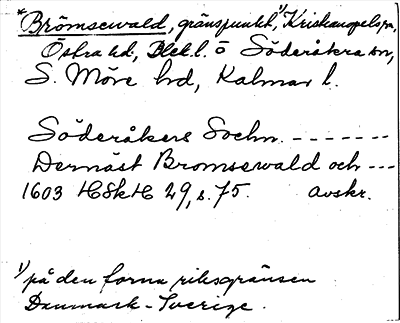 *Brömsewald, gränspunkt,¹⁾ Kristianopels sn,
Östra hd, Blek.l. o Söderåkra sn,
S. Möre hd, Kalmar l.
Söderåkers Sochn. - - - - - - -
Dernäst Bromsewald och - - -
1603 HSkH 29, s. 75. avskr.
¹⁾ på den forna riksgränsen
Danmark - Sverige.